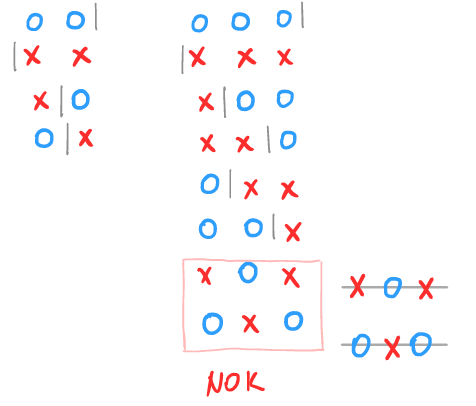 O O|
|X X
X|O
O|X
O O O|
|X X X
X|O O
X X|O
O|X X
O O|X
X O X
O X O
X O X
O X O
NOK